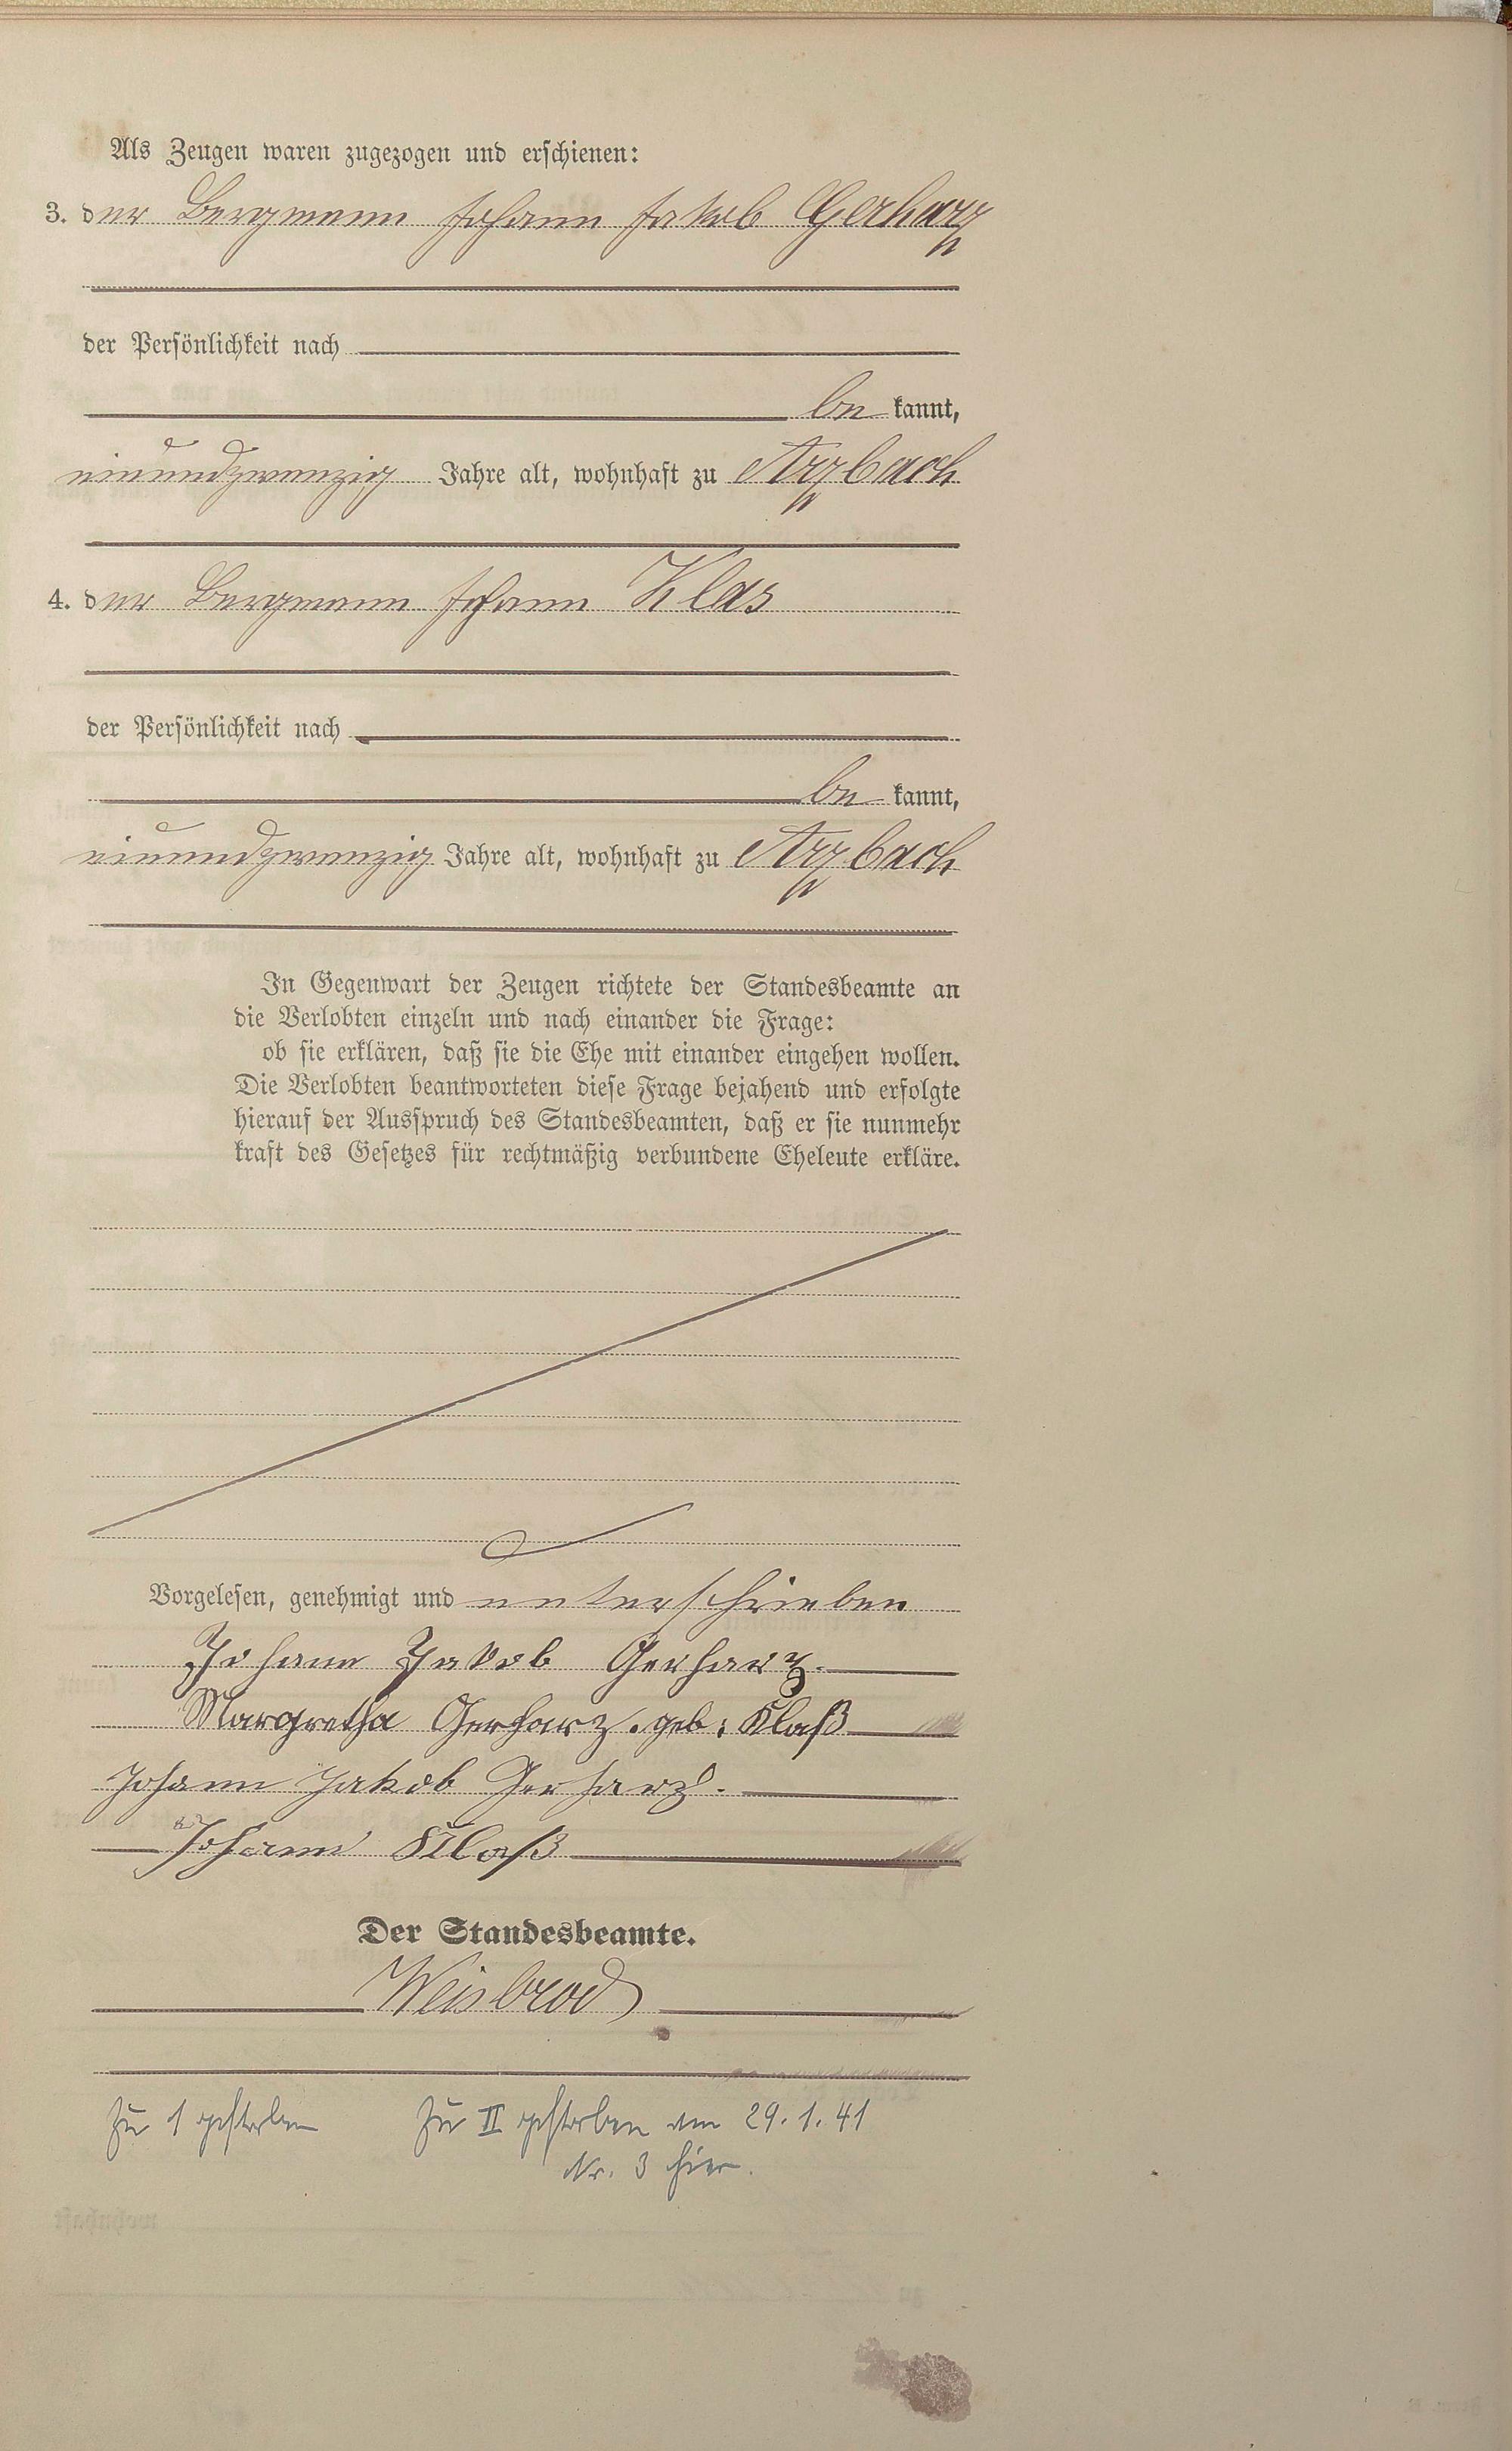 Als Zeugen waren zugezogen und erschienen:
3. der Bergmann Johann Jakob Gerharz
der Persönlichkeit nach
be kannt,
einundzwanzig Jahre alt, wohnhaft zu Arzbach
4. der Bergmann Johann Klas
der Persönlichkeit nach
be kannt,
einundzwanzig Jahre alt, wohnhaft zu Arzbach
In Gegenwart der Zeugen richtete der Standesbeamte an
die Verlobten einzeln und nach einander die Frage:
ob sie erklären, daß sie die Ehe mit einander eingehen wollen.
Die Verlobten beantworteten diese Frage bejahend und erfolgte
hierauf der Ausspruch des Standesbeamten, daß er sie nunmehr
kraft des Gesetzes für rechtmäßig verbundene Eheleute erkläre.
Vorgelesen, genehmigt und unterschrieben
Johann Jakob Gerharz.
Margretha Gerharz. geb: Klaß
Johann Jakob Gerharz.
Johann Klaß
Der Standesbeamte.
Weisbrod
Zu 1 gestorben Zu II gestorben am 29.1.41
Nr. 3 hier.